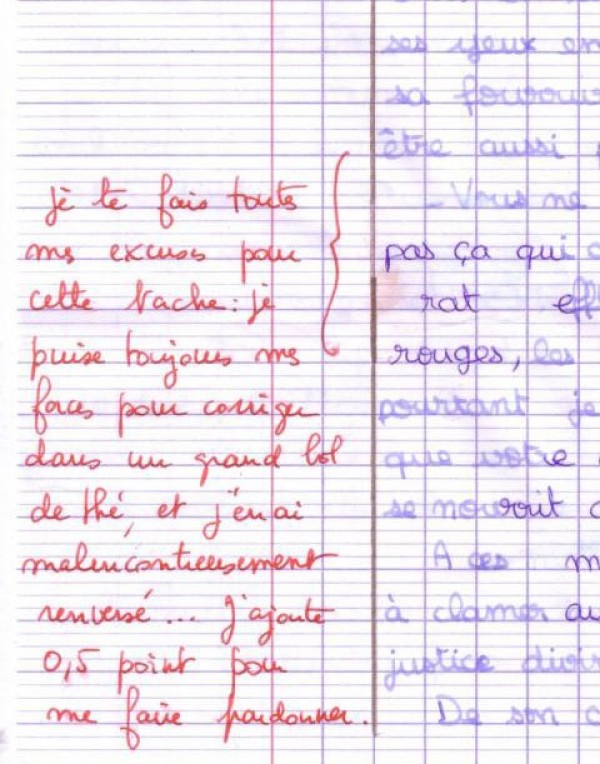 ses yeux en
sa
être aussi
je te fais toutes
mes excuses pour
cette tache : je
puise toujours mes
forces pour corriger
dans un grand bol
de thé, et j'en ai
malencontreusement
renversé... j'ajoute
0,5 point pour
me faire pardonner.
- Vous ne
pas ça qui
rat eff
rouges, les
pourtant je
que votre
se nourrit
A ces m
à clamer au
justice divi
De son c